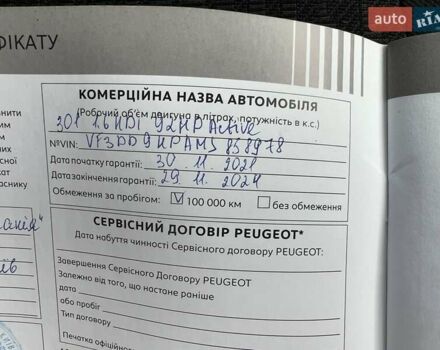 RIA
ФІКАТУ
КОМЕРЦІЙНА НАЗВА АВТОМОБІЛЯ
(Робочий об'єм двигуна в літрах, потужність в к.с.)
301 1.6 HDI 92HP Active
№VIN: VF3DD9HPAMJ858978
Дата початку гарантії: 30 . 11 . 2021
Дата закінчення гарантії: 29 . 11 . 2024
Обмеження за пробігом: V 100 000 км без обмеження
СЕРВІСНИЙ ДОГОВІР PEUGEOT*
Дата набуття чинності Сервісного договору PEUGEOT:
Завершення Сервісного Договору PEUGEOT
Залежно від того, що настане раніше
дата
або пробіг
Тип договору
Печатка офіційно